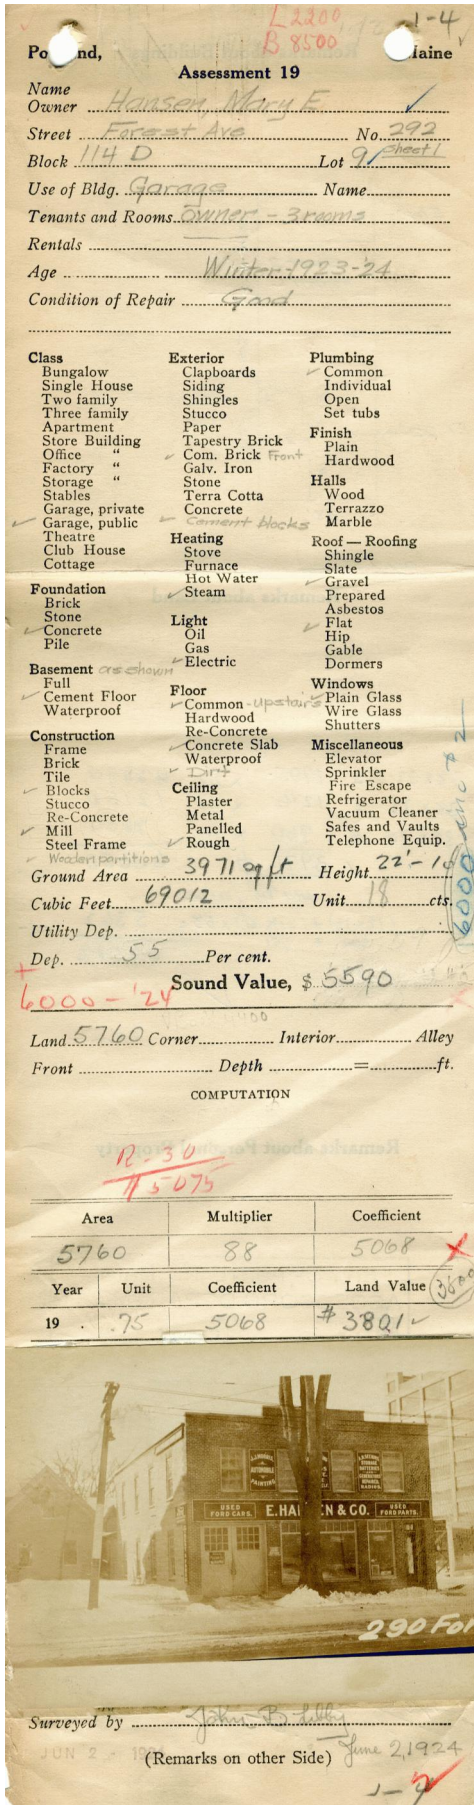 L 2200
B 8500
1-4
Po nd, Maine
Assessment 19
Name
Owner Hansen, Mary E.
Street Forest Ave No. 292
Block 114 D Lot 9 Sheet 1
Use of Bldg. Garage Name
Tenants and Rooms owner - 3 rooms
Rentals
Age Winter-1923-'24
Condition of Repair Good
Class
Bungalow
Single House
Two family
Three family
Apartment
Store Building
Office "
Factory "
Storage "
Stables
Garage, private
✓ Garage, public
Theatre
Club House
Cottage
Foundation
Brick
Stone
✓ Concrete
Pile
Basement as shown
Full
✓ Cement Floor
Waterproof
Construction
Frame
Brick
Tile
✓ Blocks
Stucco
Re-Concrete
✓ Mill
Steel Frame
✓ Wooden partitions
Exterior
Clapboards
Siding
Shingles
Stucco
Paper
Tapestry Brick
✓ Com. Brick Front
Galv. Iron
Stone
Terra Cotta
Concrete
✓ Cement blocks
Heating
Stove
Furnace
Hot Water
✓ Steam
Light
Oil
Gas
✓ Electric
Floor
✓ Common - upstairs
Hardwood
Re-Concrete
✓ Concrete Slab
Waterproof
✓ Dirt
Ceiling
Plaster
Metal
Panelled
✓ Rough
Plumbing
✓ Common
Individual
Open
Set tubs
Finish
Plain
Hardwood
Halls
Wood
Terrazzo
Marble
Roof — Roofing
Shingle
Slate
✓ Gravel
Prepared
Asbestos
✓ Flat
Hip
Gable
Dormers
Windows
✓ Plain Glass
Wire Glass
Shutters
Miscellaneous
Elevator
Sprinkler
Fire Escape
Refrigerator
Vacuum Cleaner
Safes and Vaults
Telephone Equip.
6000
Ground Area 3971 sq ft Height 22'-10
Cubic Feet 69012 Unit 18 cts.
Utility Dep.
Dep. 55 Per cent.
Sound Value, $ 5590
6000 - '24
Land 5760 Corner Interior Alley
Front Depth = ft.
COMPUTATION
R-30
# 5075
Area Multiplier Coefficient
5760 88 5068
Year Unit Coefficient Land Value 3800
19 . .75 5068 # 3801 ✓
AUTOMOBILE
PAINTING
STORAGE
BATTERIES
RADIOS
USED
FORD CARS.
E. HA EN & CO.
USED
FORD PARTS.
290 For
Surveyed by John B Libby
JUN 2 - 19
(Remarks on other Side) June 2, 1924